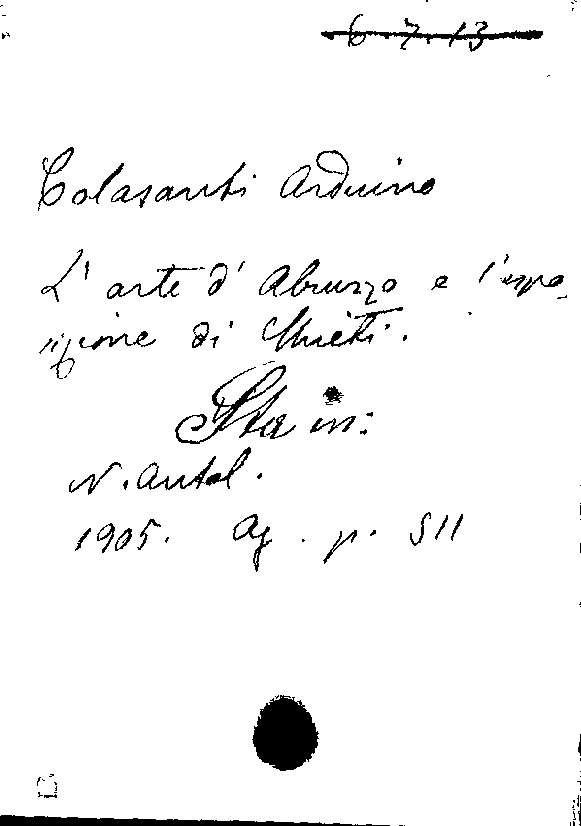 6.7.13
Colasanti Arduino
L'arte d'Abruzzo e l'espo-
sizione di Chieti.
Sta in:
N. Antol.
1905. Ag. p. 511